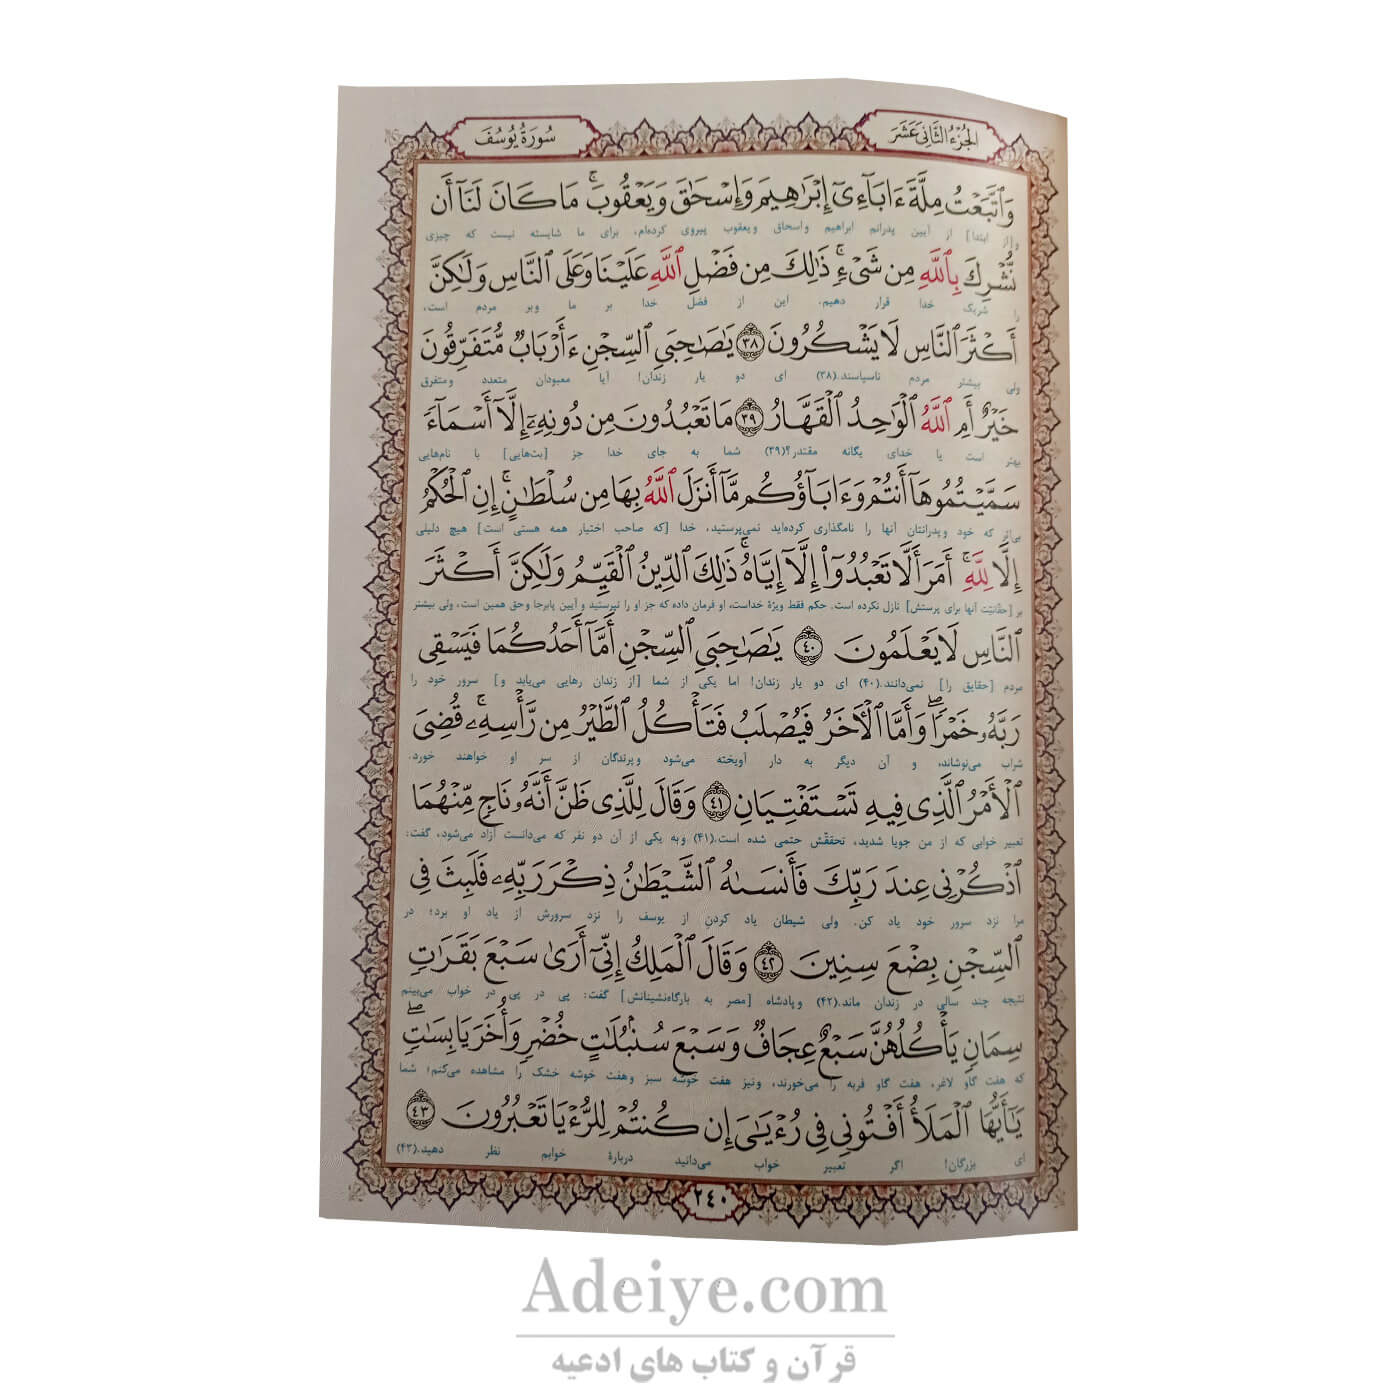 الجُزْءُ الثَّانِيَ عَشَرَ
سُورَةُ يُوسُفَ
وَٱتَّبَعْتُ مِلَّةَ ءَابَآءِىٓ إِبْرَٰهِيمَ وَإِسْحَٰقَ وَيَعْقُوبَۚ مَا كَانَ لَنَآ أَن
و[از ابتدا] از آیین پدرانم ابراهیم واسحاق ویعقوب پیروی کرده‌ام، برای ما شایسته نیست که چیزی
نُّشْرِكَ بِٱللَّهِ مِن شَىْءٍۚ ذَٰلِكَ مِن فَضْلِ ٱللَّهِ عَلَيْنَا وَعَلَى ٱلنَّاسِ وَلَٰكِنَّ
را شریک خدا قرار دهیم. این از فضل خدا بر ما وبر مردم است،
أَكْثَرَ ٱلنَّاسِ لَا يَشْكُرُونَ ٣٨ يَٰصَٰحِبَىِ ٱلسِّجْنِ ءَأَرْبَابٌ مُّتَفَرِّقُونَ
ولی بیشتر مردم ناسپاسند.(۳۸) ای دو یار زندان! آیا معبودان متعدد ومتفرق
خَيْرٌ أَمِ ٱللَّهُ ٱلْوَٰحِدُ ٱلْقَهَّارُ ٣٩ مَا تَعْبُدُونَ مِن دُونِهِۦٓ إِلَّآ أَسْمَآءً
بهتر است یا خدای یگانه مقتدر؟(۳۹) شما به جای خدا جز [بت‌هایی] با نام‌هایی
سَمَّيْتُمُوهَآ أَنتُمْ وَءَابَآؤُكُم مَّآ أَنزَلَ ٱللَّهُ بِهَا مِن سُلْطَٰنٍۚ إِنِ ٱلْحُكْمُ
بی‌اثر که خود وپدرانتان آنها را نامگذاری کرده‌اید نمی‌پرستید، خدا [که صاحب اختیار همه هستی است] هیچ دلیلی
إِلَّا لِلَّهِۚ أَمَرَ أَلَّا تَعْبُدُوٓا۟ إِلَّآ إِيَّاهُۚ ذَٰلِكَ ٱلدِّينُ ٱلْقَيِّمُ وَلَٰكِنَّ أَكْثَرَ
بر [حقّانیّت آنها برای پرستش] نازل نکرده است. حکم فقط ویژهٔ خداست، او فرمان داده که جز او را نپرستید و آیین پابرجا وحق همین است، ولی بیشتر
ٱلنَّاسِ لَا يَعْلَمُونَ ٤٠ يَٰصَٰحِبَىِ ٱلسِّجْنِ أَمَّآ أَحَدُكُمَا فَيَسْقِى
مردم [حقایق را] نمی‌دانند.(۴۰) ای دو یار زندان! اما یکی از شما [از زندان رهایی می‌یابد و] سرور خود را
رَبَّهُۥ خَمْرًاۖ وَأَمَّا ٱلْءَاخَرُ فَيُصْلَبُ فَتَأْكُلُ ٱلطَّيْرُ مِن رَّأْسِهِۦۚ قُضِىَ
شراب می‌نوشاند، و آن دیگر به دار آویخته می‌شود وپرندگان از سر او خواهند خورد.
ٱلْأَمْرُ ٱلَّذِى فِيهِ تَسْتَفْتِيَانِ ٤١ وَقَالَ لِلَّذِى ظَنَّ أَنَّهُۥ نَاجٍ مِّنْهُمَا
تعبیر خوابی که از من جویا شدید، تحققش حتمی شده است.(۴۱) وبه یکی از آن دو نفر که می‌دانست آزاد می‌شود، گفت:
ٱذْكُرْنِى عِندَ رَبِّكَ فَأَنسَىٰهُ ٱلشَّيْطَٰنُ ذِكْرَ رَبِّهِۦ فَلَبِثَ فِى
مرا نزد سرور خود یاد کن. ولی شیطان یاد کردن از یوسف را نزد سرورش از یاد او برد؛ در
ٱلسِّجْنِ بِضْعَ سِنِينَ ٤٢ وَقَالَ ٱلْمَلِكُ إِنِّىٓ أَرَىٰ سَبْعَ بَقَرَٰتٍ
نتیجه چند سالی در زندان ماند.(۴۲) وپادشاه [مصر به بارگاه‌نشینانش] گفت: پی در پی در خواب می‌بینم
سِمَانٍ يَأْكُلُهُنَّ سَبْعٌ عِجَافٌ وَسَبْعَ سُنۢبُلَٰتٍ خُضْرٍ وَأُخَرَ يَابِسَٰتٍۖ
که هفت گاو لاغر، هفت گاو فربه را می‌خورند، ونیز هفت خوشه سبز وهفت خوشه خشک را مشاهده می‌کنم؛ شما
يَٰٓأَيُّهَا ٱلْمَلَأُ أَفْتُونِى فِى رُءْيَٰىَ إِن كُنتُمْ لِلرُّءْيَا تَعْبُرُونَ ٤٣
ای بزرگان! اگر تعبیر خواب می‌دانید دربارهٔ خوابم نظر دهید.(۴۳)
٢٤٠
Adeiye.com
قرآن و کتاب های ادعیه